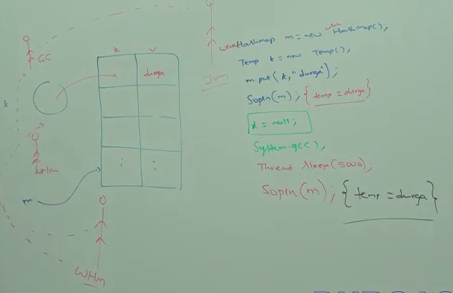 GC
k
WHm
m
WHm
k v
durga
: :
JVM
WeakHashmap m = new WeakHashmap();
Temp k = new Temp();
m.put(k,"durga");
Sopln(m); {temp = durga}
k = null;
System.gc();
Thread.sleep(5000);
Sopln(m); {temp = durga}